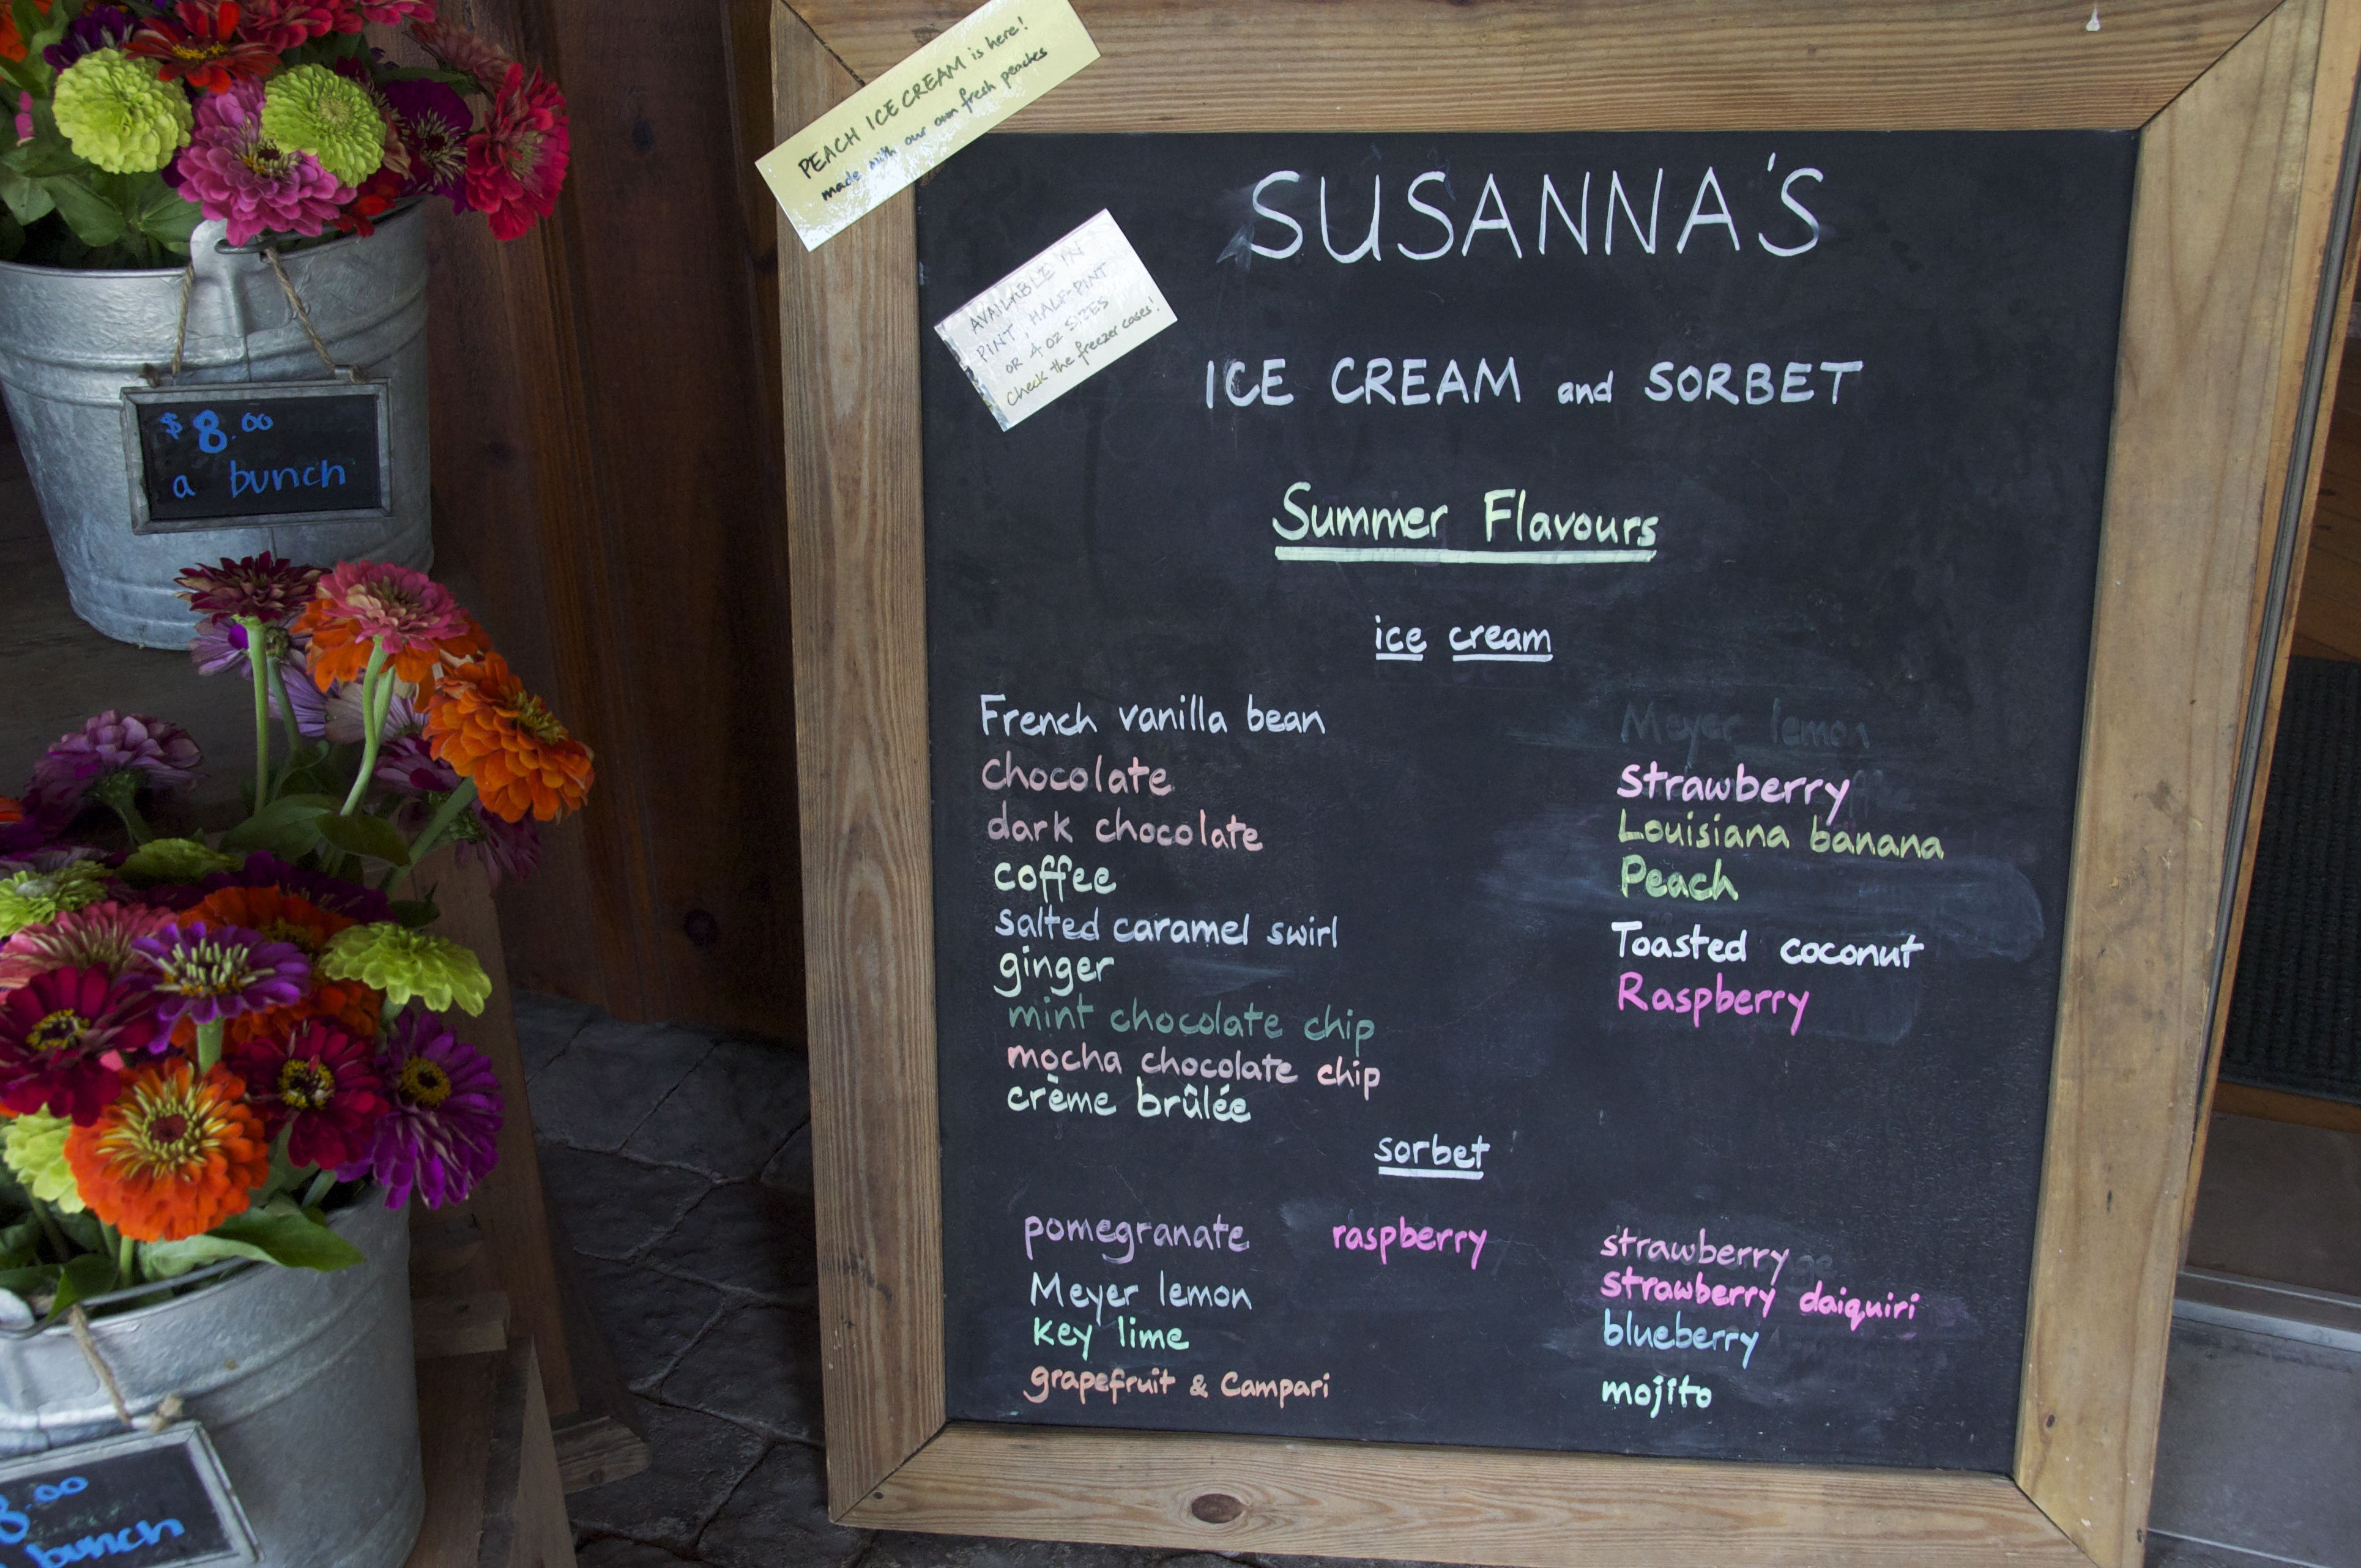 PEACH ICE CREAM is here!
made with our own fresh peaches
AVAILABLE IN
PINT, HALF-PINT
OR 4 OZ SIZES
check the freezer cases!
SUSANNA'S
ICE CREAM and SORBET
Summer Flavours
ice cream
French vanilla bean
chocolate
dark chocolate
coffee
salted caramel swirl
ginger
mint chocolate chip
mocha chocolate chip
crème brûlée
Meyer lemon
Strawberry
Louisiana banana
Peach
Toasted coconut
Raspberry
sorbet
pomegranate
Meyer lemon
Key lime
grapefruit & Campari
raspberry
strawberry
strawberry daiquiri
blueberry
mojito
$8.00
a bunch
8.00
bunch